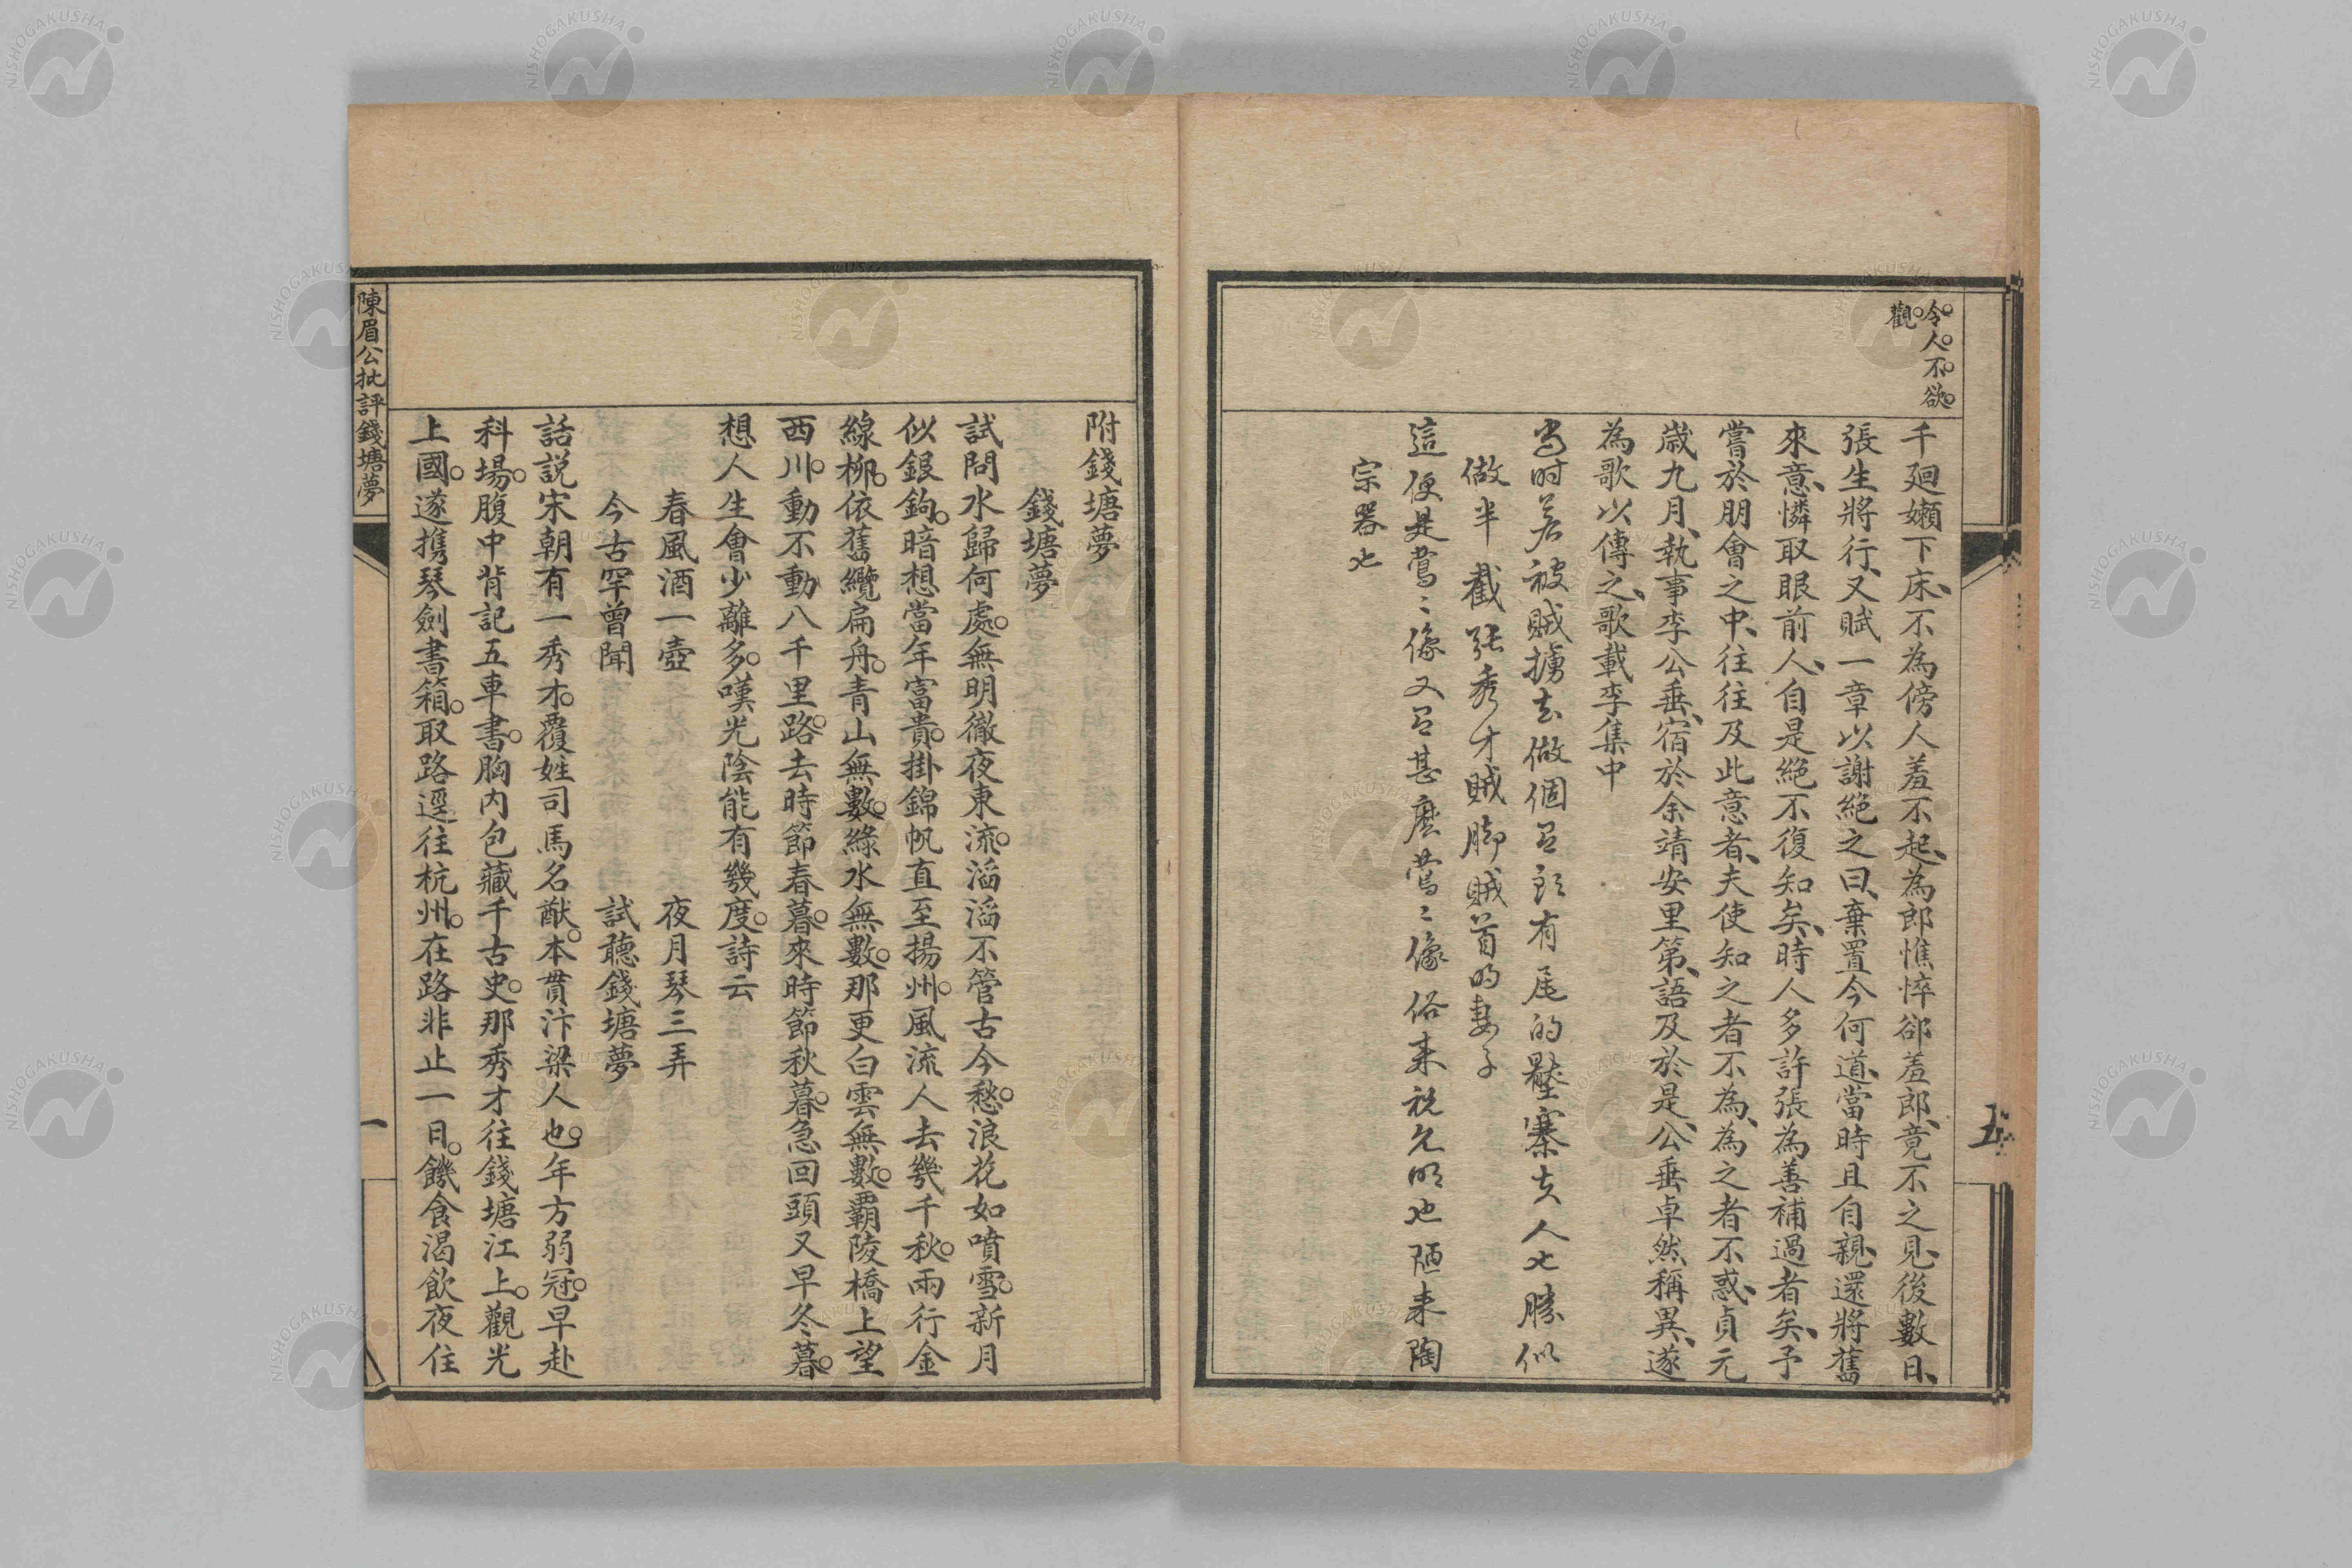 令人不欲
觀
千廻嬾下床、不為傍人羞不起、為郎憔悴郤羞郎、竟不之見、後數日、
張生將行、又賦一章以謝絕之曰、棄置今何道、當時且自親、還將舊
來意、憐取眼前人、自是絕不復知矣、時人多許張為善補過者矣、予
嘗於朋會之中、往往及此意者、夫使知之者不為、為之者不惑、貞元
歲九月、執事李公垂、宿於余靖安里第、語及於是、公垂卓然稱異、遂
為歌以傳之、歌載李集中
當时若被賊擄去做個有頭有尾的壓寨夫人也勝似
做半截張秀才賊脚賊首的妻子
這便是鶯〻像又有甚麼鶯〻像俗來祝允明也陋来陶
宗器也
五
附錢塘夢
錢塘夢
試問水歸何處。無明徹夜東流。滔滔不管古今愁。浪花如噴雪。新月
似銀鉤。暗想當年富貴。掛錦帆直至揚州。風流人去幾千秋。兩行金
線柳。依舊纜扁舟。青山無數。綠水無數。那更白雲無數。霸陵橋上望
西川。動不動八千里路。去時節春暮。來時節秋暮。急回頭又早冬暮。
想人生會少離多。嘆光陰能有幾度。詩云
春風酒一壺 夜月琴三弄
今古罕曾聞 試聽錢塘夢
話說宋朝有一秀才。覆姓司馬名猷。本貫汴梁人也。年方弱冠。早赴
科場。腹中背記五車書。胸內包藏千古史。那秀才往錢塘江上。觀光
上國。遂携琴劍書箱。取路逕往杭州。在路非止一日。饑食渴飲夜住
陳眉公批評錢塘夢
一
NISHOGAKUSHA